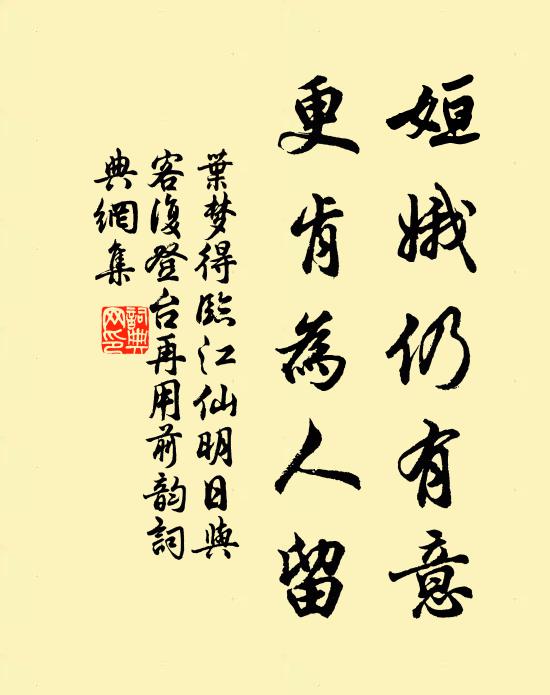 姮娥仍有意
更肯為人留
葉梦得臨江仙明日與
客復登台再用前韵詞
典網集
詞典
网印